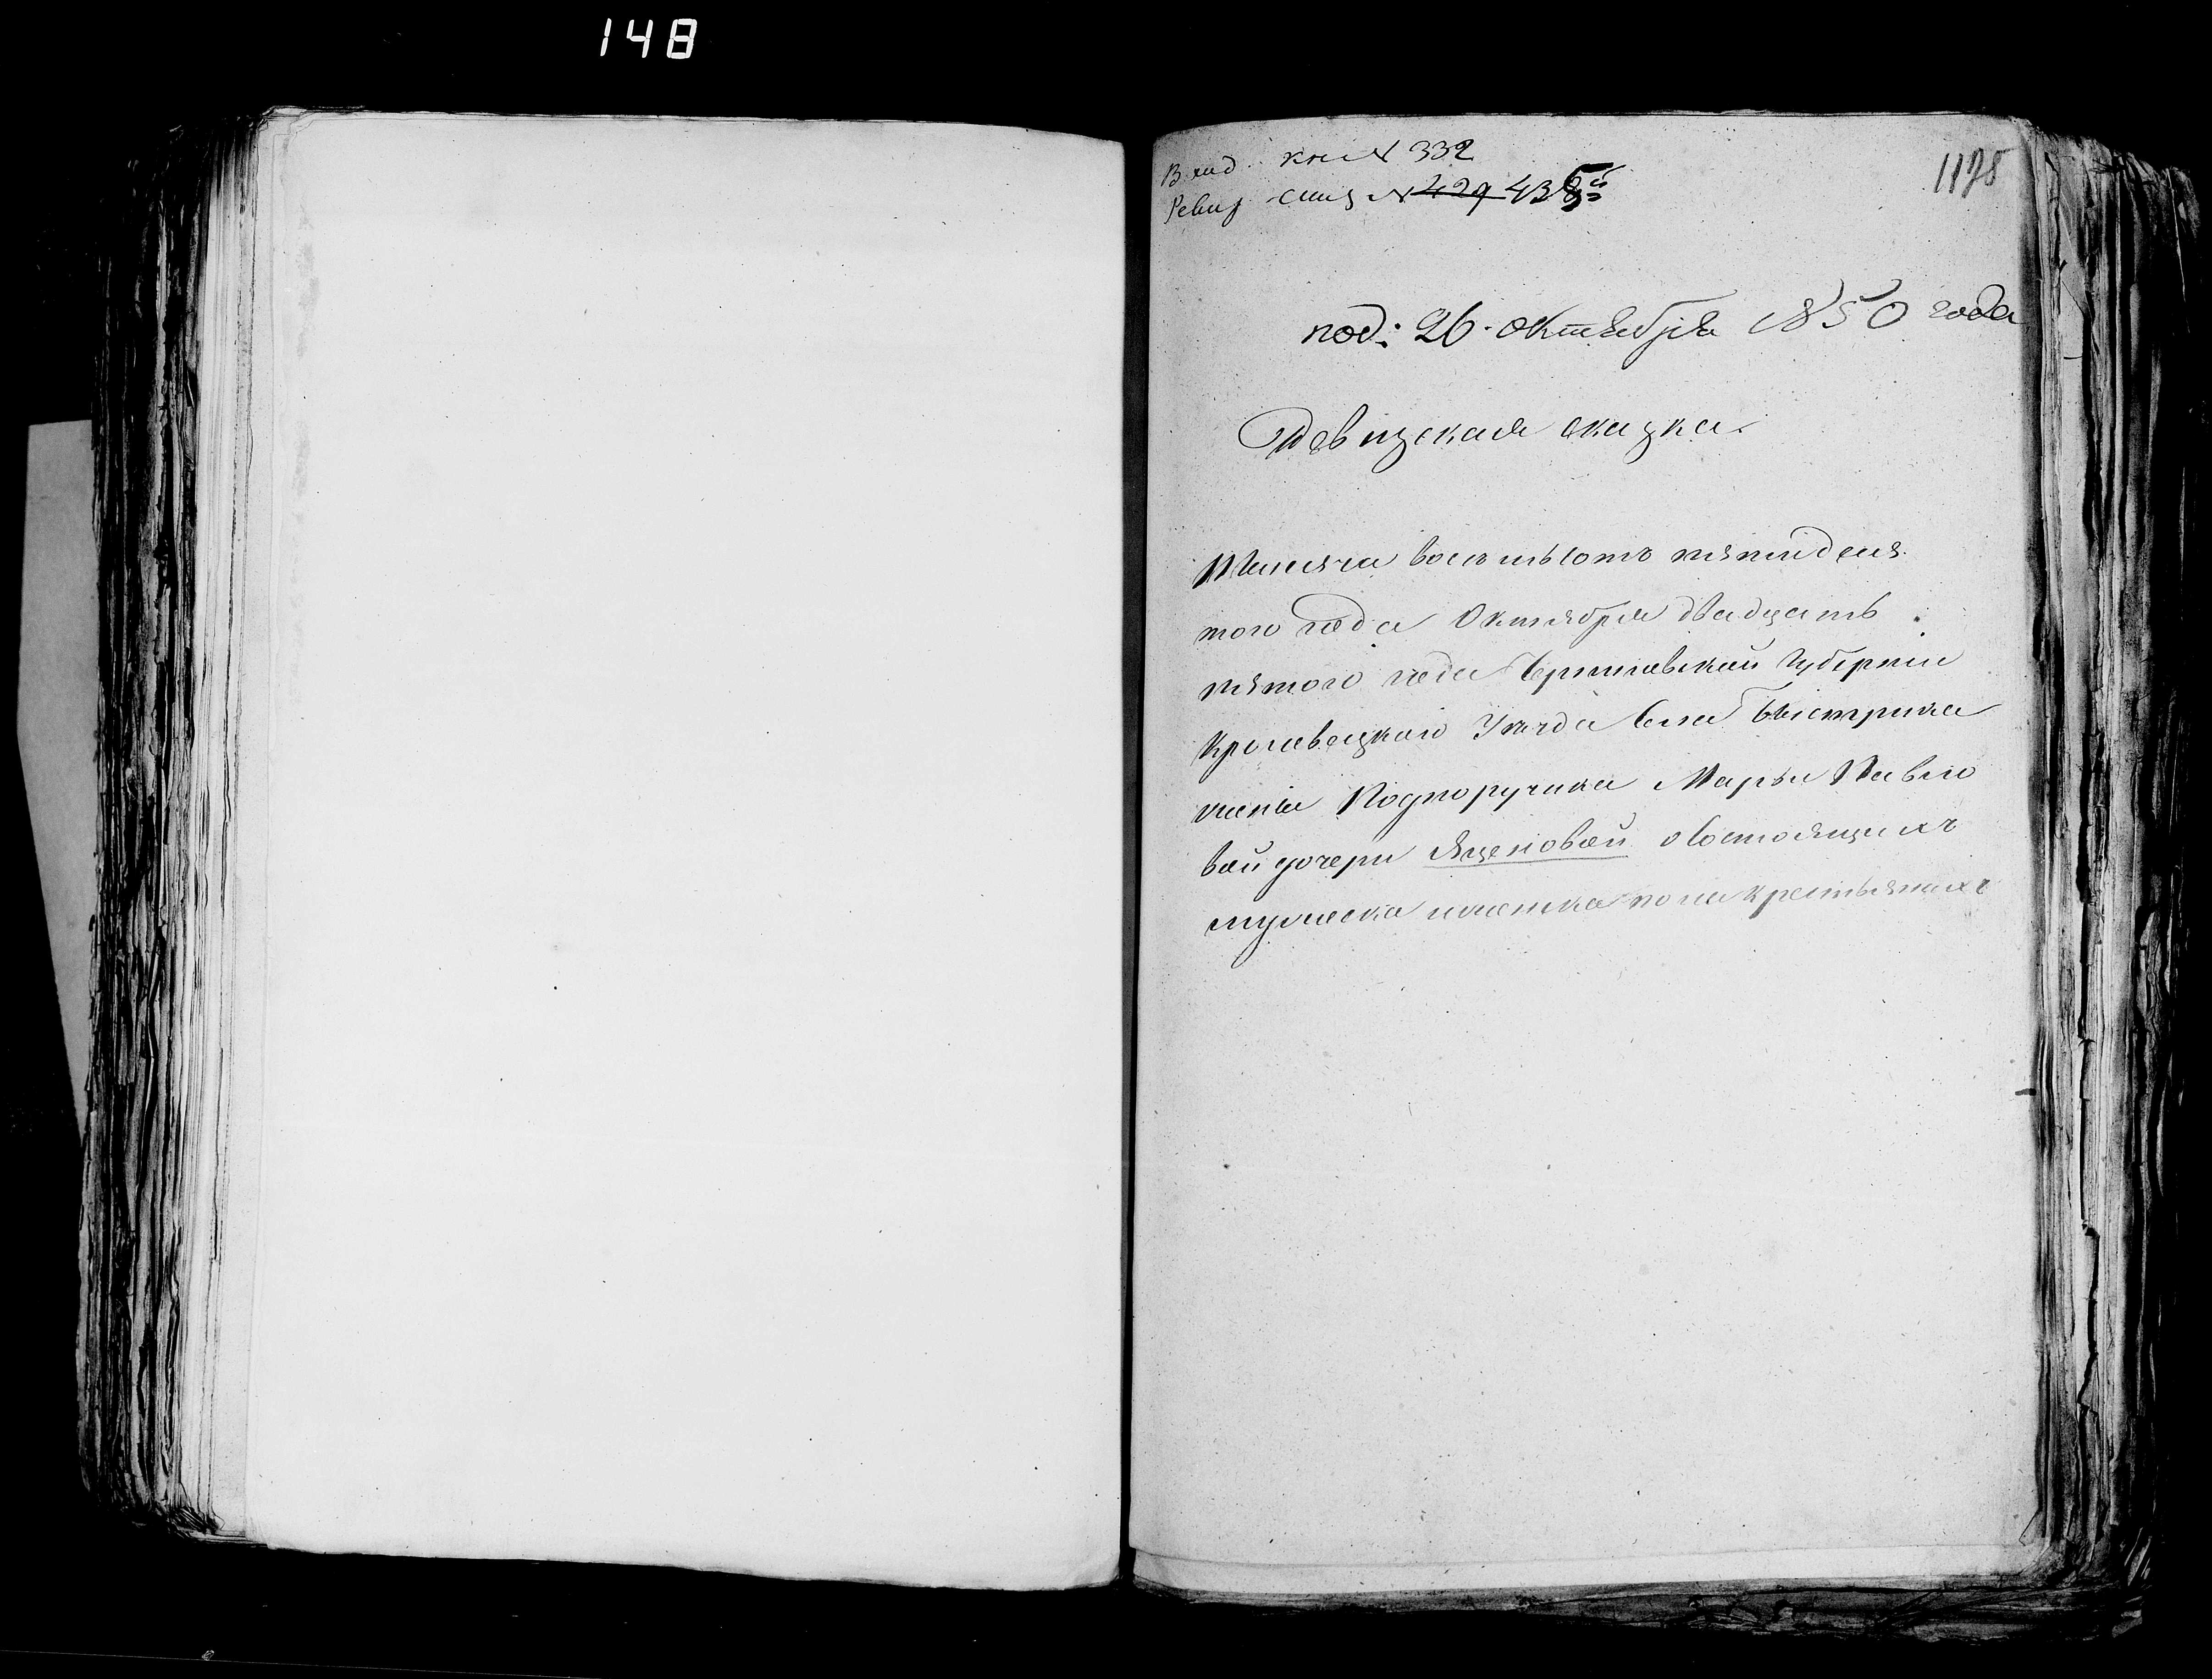 148
Вход кн N 332
Ревиз Спис N 429 435
1175
под: 26. октября 1850 года
Ревизская сказка.
Тысяча восемьсотъ пятидеся
того года Октября двадцать
пятого года Черниговской Губернии
Кролевецкого Уезда Села Быстрика
Подпоручика Марьи Павло
вой дочери Яценковой о состоящихъ
мужеска и женска пола крестьянахъ